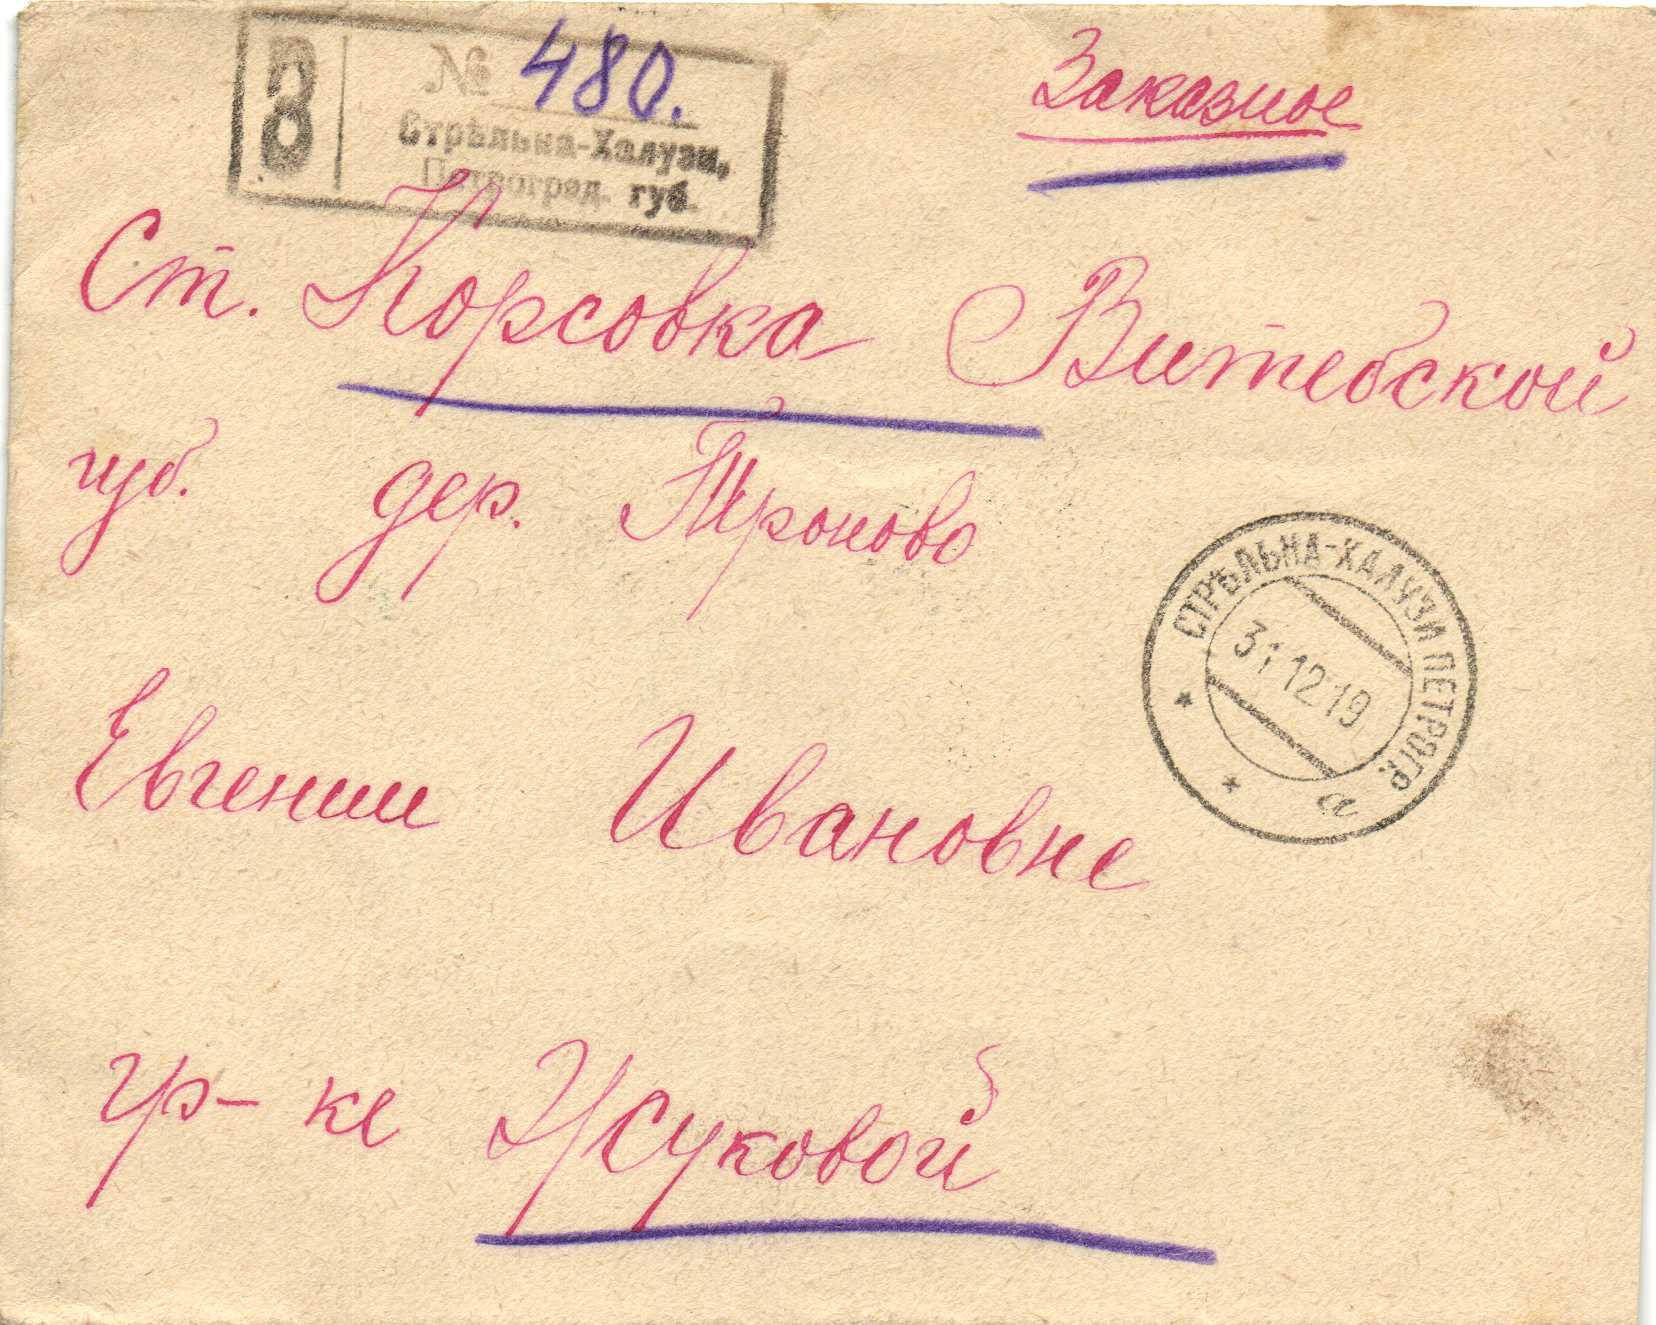 З
№ 480.
Стрѣльна-Халузи,
Петроград. губ.
Заказное
Ст. Корсовка Витебской
губ. дер. Троново
Евгении Ивановне
гр-ке Усуковой
СТРѢЛЬНА-ХАЛУЗИ ПЕТРОГР.
31 12 19
а